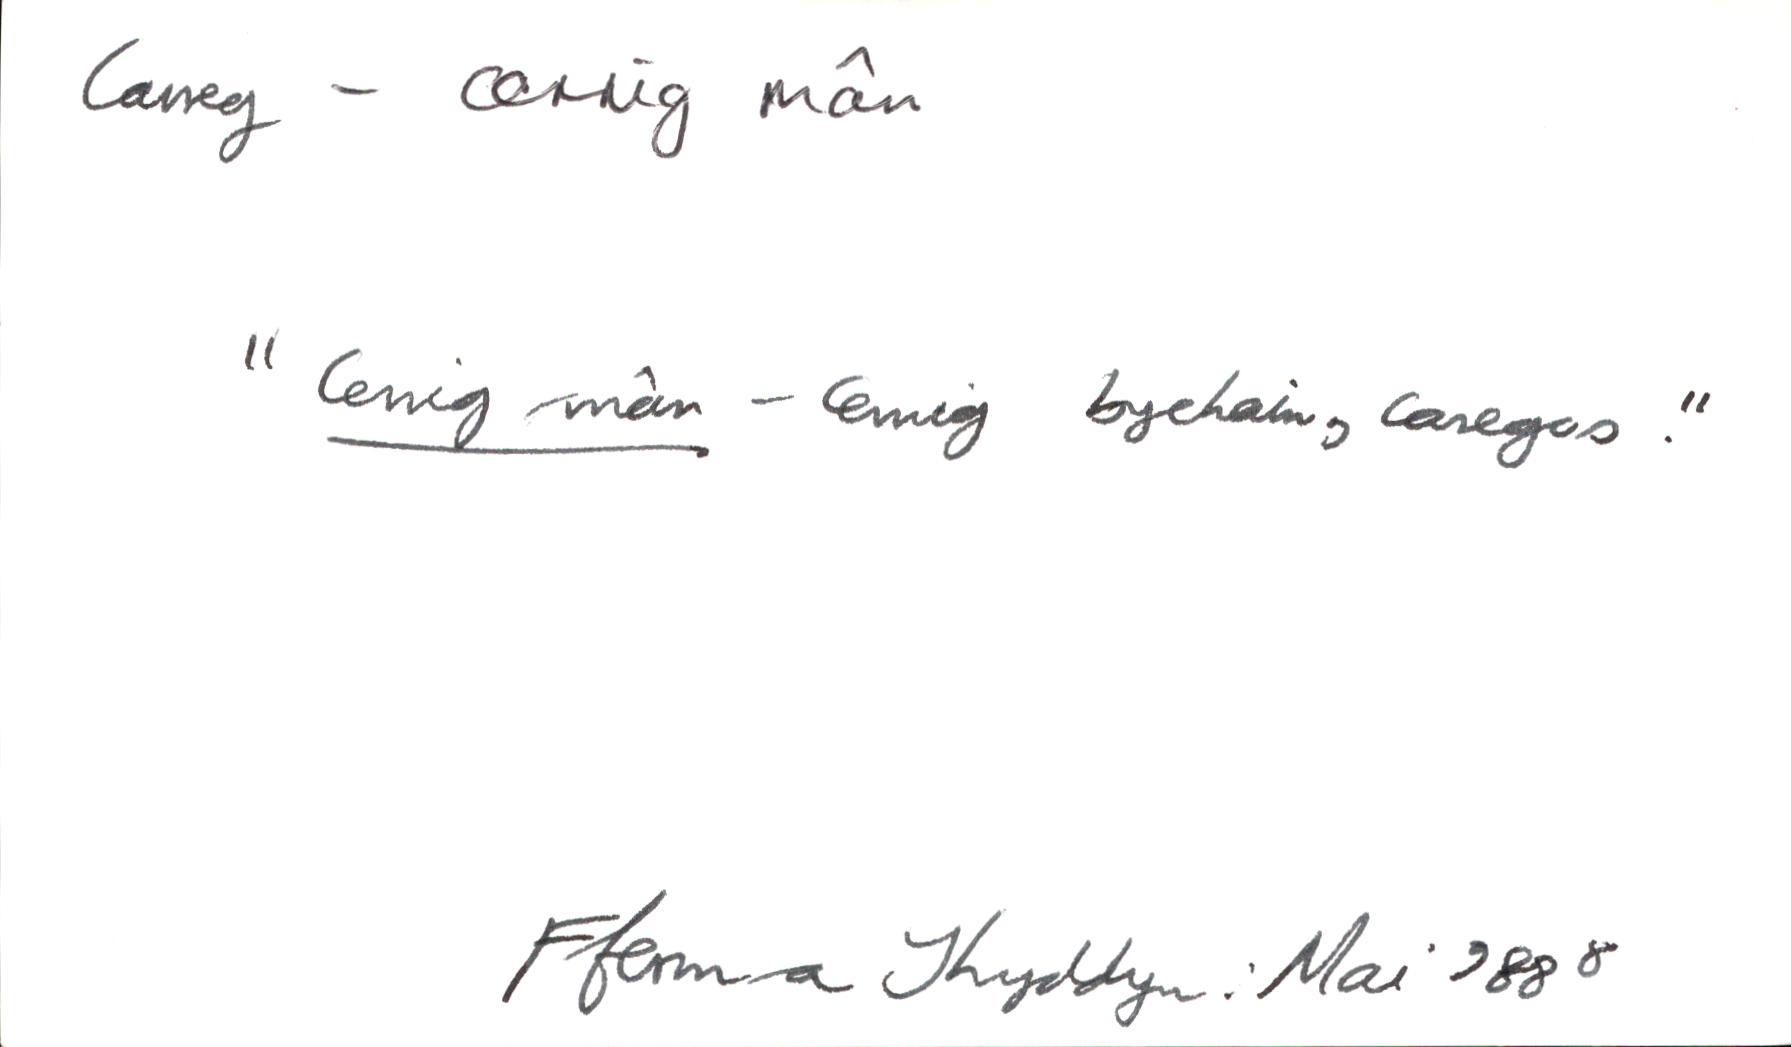 Carreg - cerrig mân
"Cerrig mân - Cerrig bychain, caregos."
Fferm a Thyddyn: Mai '88 8